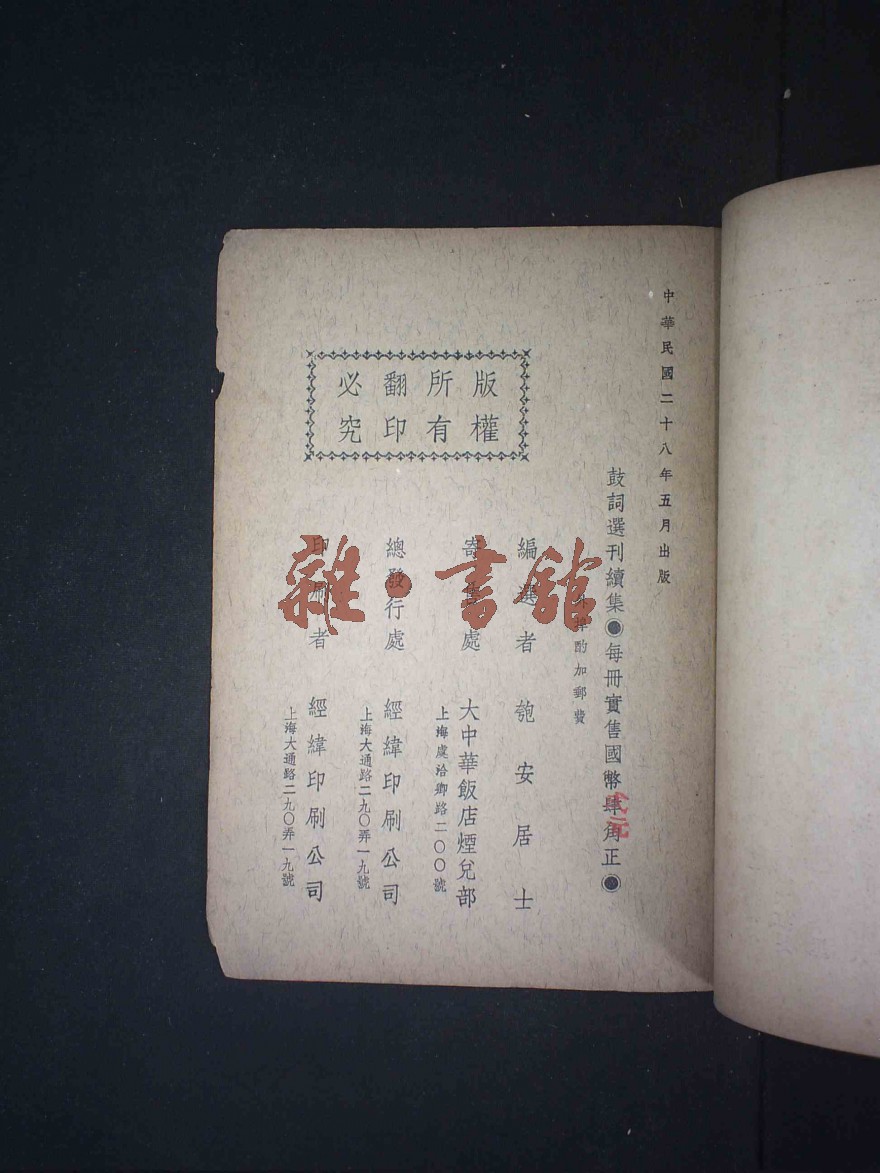 中華民國二十八年五月出版
鼓詞選刊續集◉每冊實售國幣肆角正◉
外埠酌加郵費
編選者 匏安居士
寄售處 大中華飯店煙兌部
上海虞洽卿路二〇〇號
總發行處 經緯印刷公司
上海大通路二九〇弄一九號
印刷者 經緯印刷公司
上海大通路二九〇弄一九號
版權
所有
翻印
必究
雜·書館